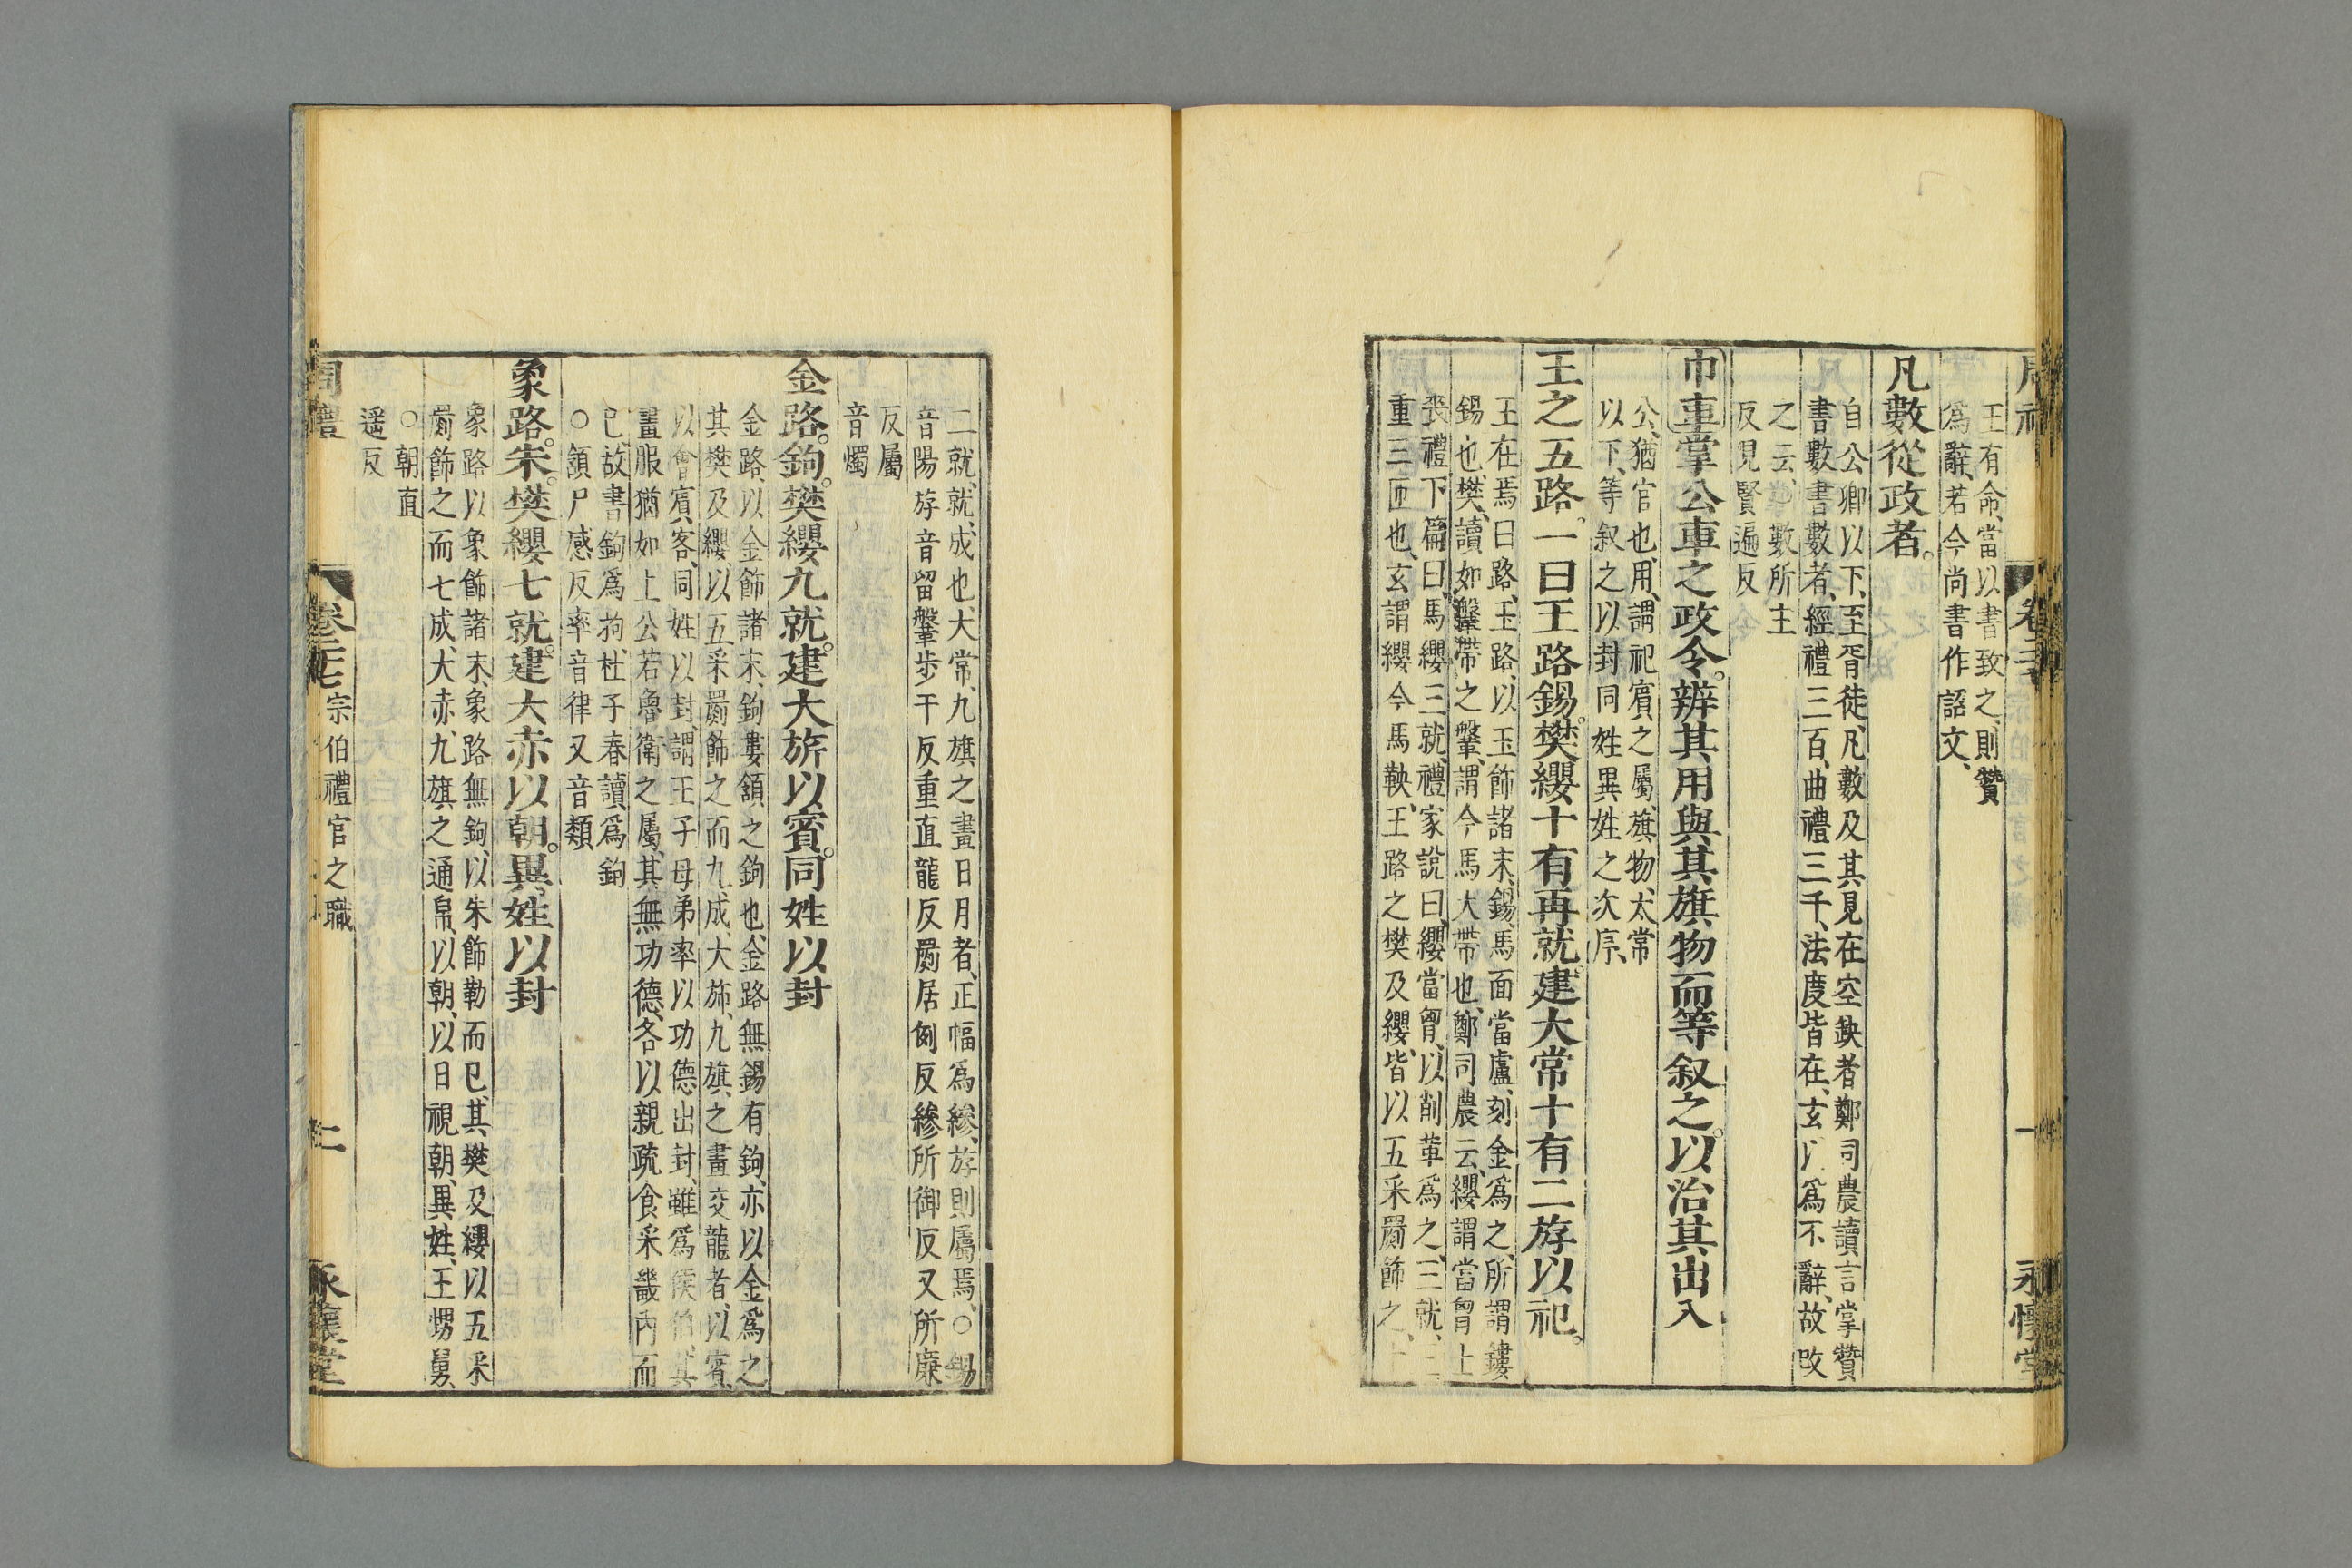 王有命、當以書致之、則贊
爲辭、若今尚書作詔文、
凡數從政者。
自公卿以下、至胥徒、凡數及其見在空缺者鄭司農讀言掌贊
書數書數者、經禮三百、曲禮三千、法度皆在、玄以爲不辭、故改
之云、掌數所主
反見賢遍反
巾車掌公車之政令。辨其用與其旗物而等叙之。以治其出入
公、猶官也、用、謂祀賓之屬、旗物、太常
以下、等叙之以封同姓異姓之次序、
王之五路。一曰王路錫。樊纓十有再就。建大常十有二斿以祀。
王在焉曰路、玉路、以玉飾諸末、錫、馬面當盧、刻金爲之、所謂鏤
錫也、樊、讀如鞶帶之鞶、謂今馬大帶也、鄭司農云、纓謂當胷、士
喪禮下篇曰、馬纓三就、禮家說曰、纓當胷、以削革爲之、三就、三
重三匝也、玄謂纓今馬鞅、王路之樊及纓、皆以五采罽飾之、十
二就、就、成也、大常、九旗之畫日月者、正幅爲縿、斿則屬焉、○錫
音陽斿音留鞶步干反重直龍反罽居例反縿所御反又所廉
反屬
音燭
金路。鉤。樊纓九就。建大旂以賓。同姓以封
金路、以金飾諸末、鉤、婁頷之鉤也、金路無錫有鉤、亦以金爲之
其樊及纓、以五采罽飾之而九成、大旂、九旗之畫交龍者、以賓、
以會賓客、同姓以封、謂王子母弟率以功德出封、雖爲侯伯、其
畫服猶如上公、若魯衛之屬、其無功德、各以親疏食采畿內而
已、故書鉤爲拘、杜子春讀爲鉤
○頷戶感反率音律又音類
象路。朱。樊纓七就。建大赤以朝。異姓以封
象路、以象飾諸末、象路無鉤、以朱飾勒而已、其樊及纓以五采
罽飾之而七成、大赤、九旗之通帛、以朝、以日視朝、異姓、王甥舅、
○朝直
遥反
周禮
卷二十七 宗伯禮官之職
二
永懷堂